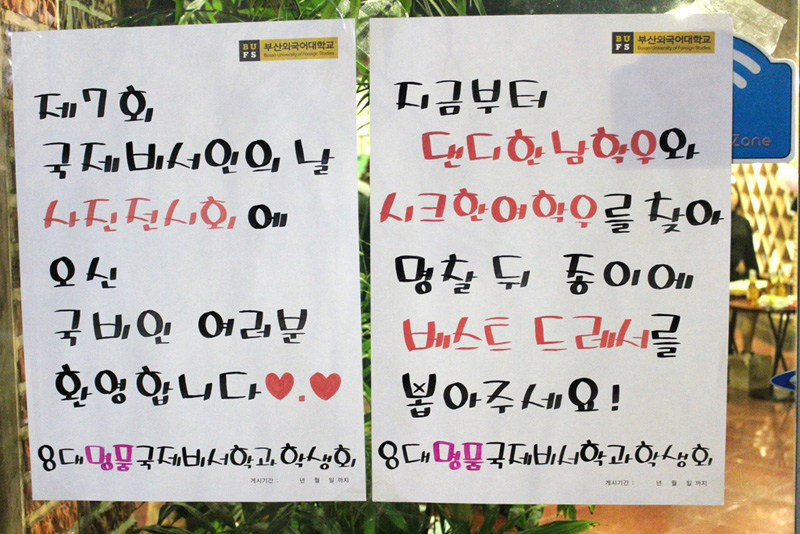 BU
FS
부산외국어대학교
Busan University of Foreign Studies
제7회
국제비서인의 날
사진전시회에
오신
국비인 여러분
환영합니다♥.♥
8대명품국제비서학과학생회
게시기간 : 년 월 일 까지
BU
FS
부산외국어대학교
Busan University of Foreign Studies
지금부터
댄디한남학우와
시크한여학우를 찾아
명찰 뒤 종이에
베스트 드레서를
뽑아주세요!
8대명품국제비서학과학생회
게시기간 : 년 월 일 까지
Zone